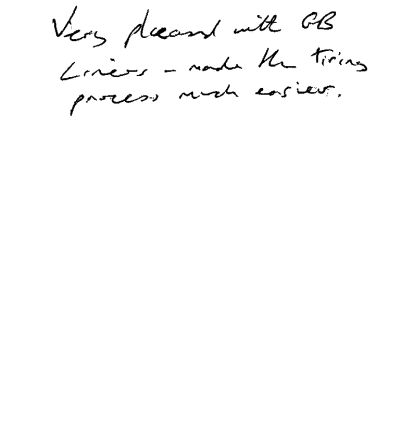 Very pleased with GB
Liners - made the tiring
process much easier.